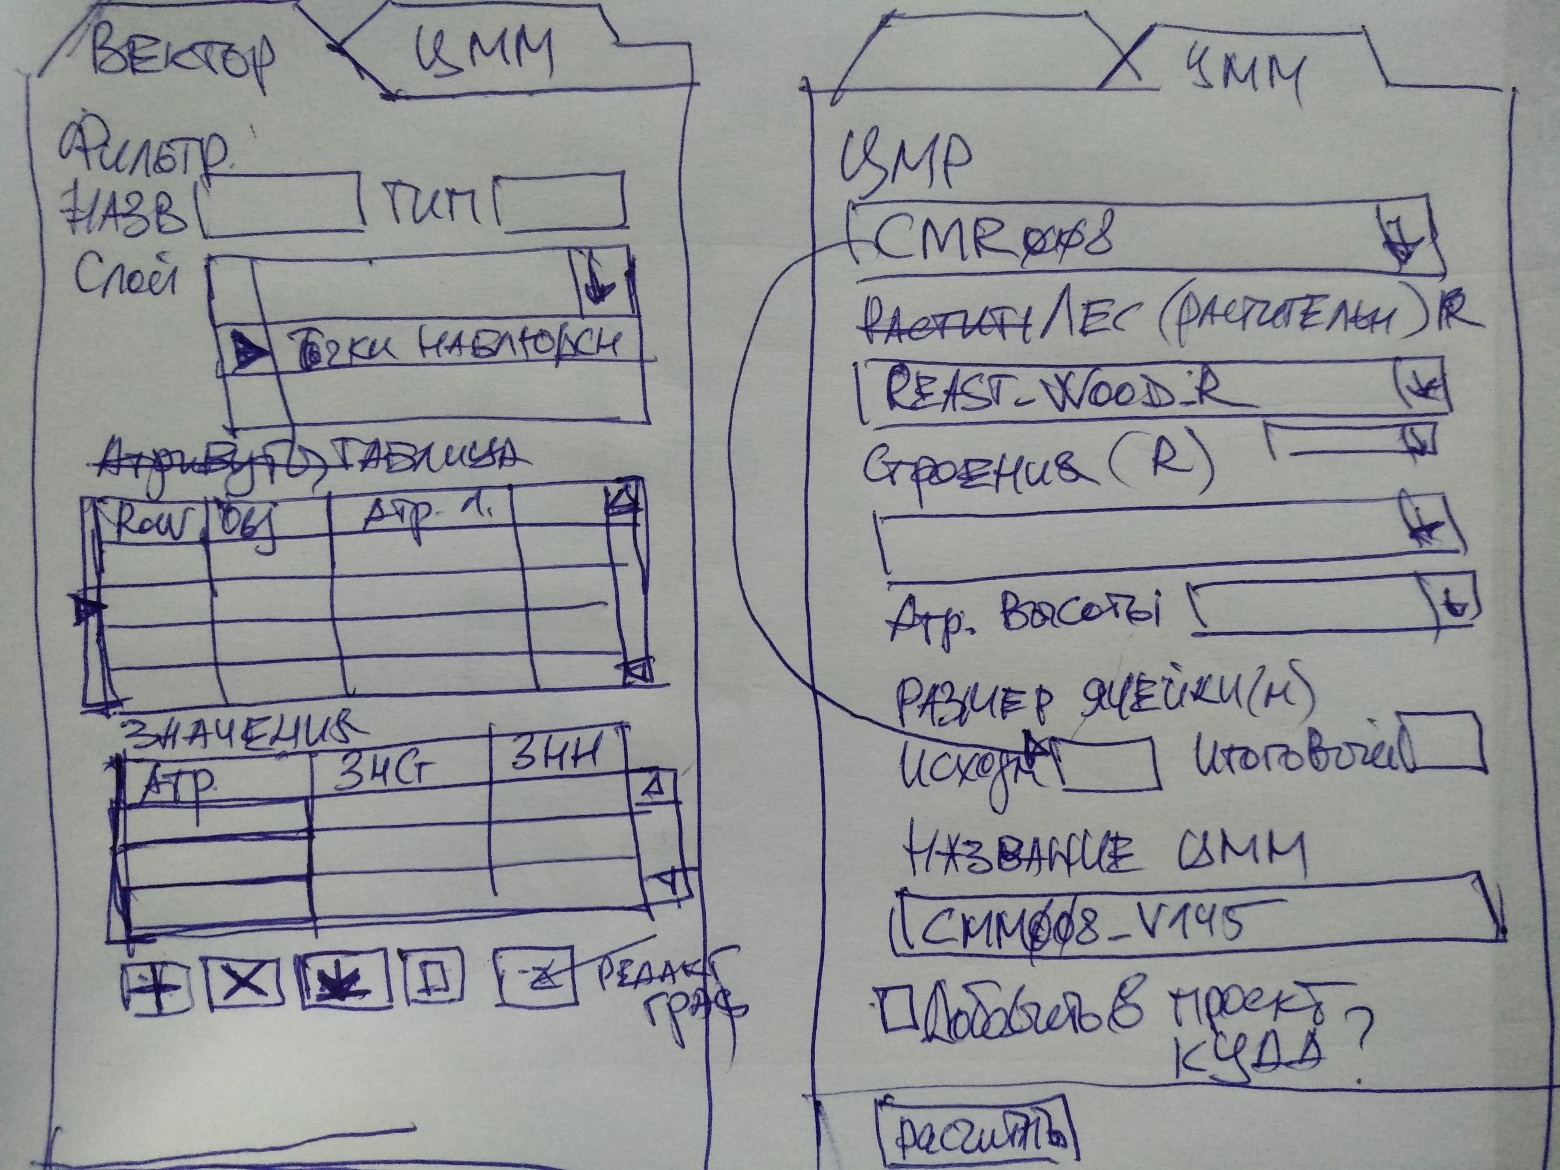 ВЕКТОР ЦММ
Фильтр.
НАЗВ ТИП
Слой
Точки НАБЛЮДЕН
Атрибуты ТАБЛИЦА
Row Obj Атр. 1.
ЗНАЧЕНИЯ
Атр. ЗНС ЗНН
РЕДАКТ
ГРАФ
ЦММ
ЦМР
CMR008
РАСТИТ ЛЕС (РАСТИТЕЛЬН) R
REAST_WOOD_R
Строения (R)
Атр. Высоты
РАЗМЕР ЯЧЕЙКИ (м)
Исходн Итоговый
НАЗВАНИЕ ЦММ
CMM008_V145
Добавить в проект
КУДА?
РАСЧИТАТЬ